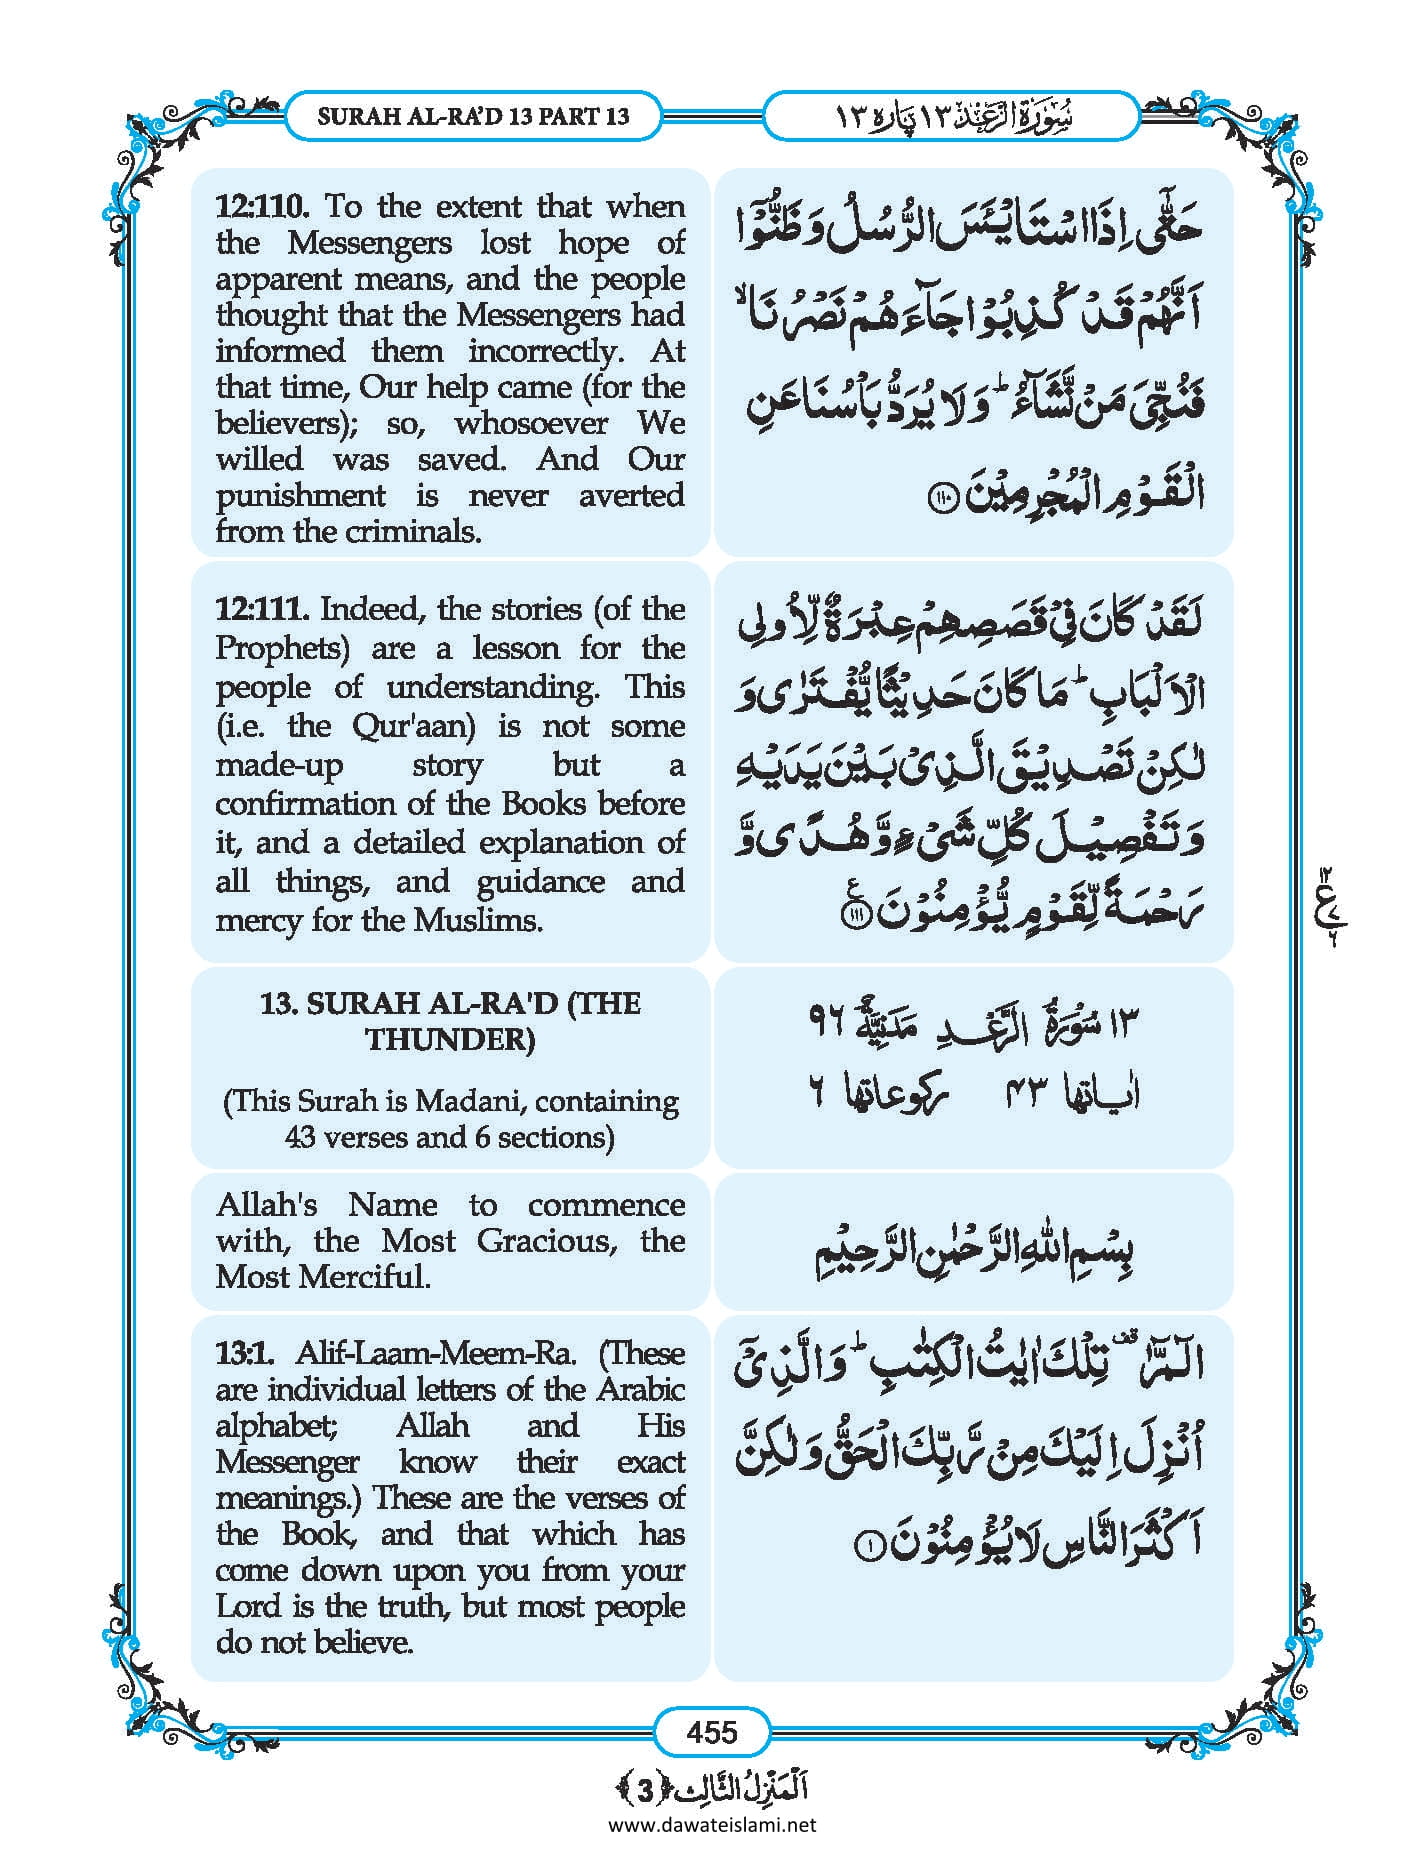 SURAH AL-RA’D 13 PART 13
سُوْرَةُ الرَّعْد ١٣ پاره ١٣
12:110. To the extent that when
the Messengers lost hope of
apparent means, and the people
thought that the Messengers had
informed them incorrectly. At
that time, Our help came (for the
believers); so, whosoever We
willed was saved. And Our
punishment is never averted
from the criminals.
حَتّٰۤى اِذَا اسْتَایْـَٔسَ الرُّسُلُ وَ ظَنُّوْۤا
اَنَّهُمْ قَدْ كُذِبُوْا جَآءَهُمْ نَصْرُنَاۙ
فَنُجِّیَ مَنْ نَّشَآءُؕ وَ لَا یُرَدُّ بَاْسُنَا عَنِ
الْقَوْمِ الْمُجْرِمِیْنَ ﴿۱۱۰﴾
12:111. Indeed, the stories (of the
Prophets) are a lesson for the
people of understanding. This
(i.e. the Qur'aan) is not some
made-up story but a
confirmation of the Books before
it, and a detailed explanation of
all things, and guidance and
mercy for the Muslims.
لَقَدْ كَانَ فِیْ قَصَصِهِمْ عِبْرَةٌ لِّاُولِی
الْاَلْبَابِؕ مَا كَانَ حَدِیْثًا یُّفْتَرٰى وَ
لٰكِنْ تَصْدِیْقَ الَّذِیْ بَیْنَ یَدَیْهِ
وَ تَفْصِیْلَ كُلِّ شَیْءٍ وَّ هُدًى وَّ
رَحْمَةً لِّقَوْمٍ یُّؤْمِنُوْنَ ﴿۱۱۱﴾ ع
۱۲
ع ۷
۶
13. SURAH AL-RA'D (THE
THUNDER)
(This Surah is Madani, containing
43 verses and 6 sections)
١٣ سُوْرَةُ الرَّعْدِ مَدَنِیَّةٌ ٩٦
اٰیاتها ۴۳ رکوعاتها ۶
Allah's Name to commence
with, the Most Gracious, the
Most Merciful.
بِسْمِ اللّٰهِ الرَّحْمٰنِ الرَّحِیْمِ
13:1. Alif-Laam-Meem-Ra. (These
are individual letters of the Arabic
alphabet; Allah and His
Messenger know their exact
meanings.) These are the verses of
the Book, and that which has
come down upon you from your
Lord is the truth, but most people
do not believe.
الٓمّٓرٰ قف تِلْكَ اٰیٰتُ الْكِتٰبِؕ وَ الَّذِیْۤ
اُنْزِلَ اِلَیْكَ مِنْ رَّبِّكَ الْحَقُّ وَ لٰكِنَّ
اَكْثَرَ النَّاسِ لَا یُؤْمِنُوْنَ ﴿۱﴾
455
اَلْمَنْزِلُ الثَّالِث ﴿3﴾
www.dawateislami.net